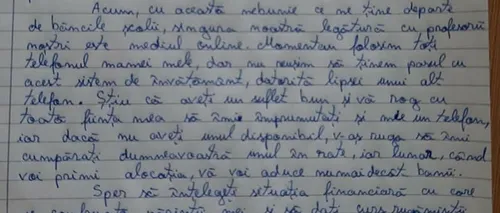 Acum, cu această nebunie a ne ține departe
de băncile școlii, singura noastră legătură cu profesorii
noștri este mediul online. Momentan folosim toți
telefonul mamei mele, dar nu reușim să ținem pasul cu
acest sistem de învățământ, datorită lipsei unui alt
telefon. Știu că aveți un suflet bun, și vă rog cu
toată ființa mea să îmi împrumutați și mie un telefon,
iar dacă nu aveți unul disponibil, v-aș ruga să îmi
cumpărați dumneavoastră unul în rate, iar lunar, când
voi primi alocația, vă voi aduce numaidecât banii.
Sper să înțelegeți situația financiară cu care
se confruntă părinții mei și să dați curs rugăminții